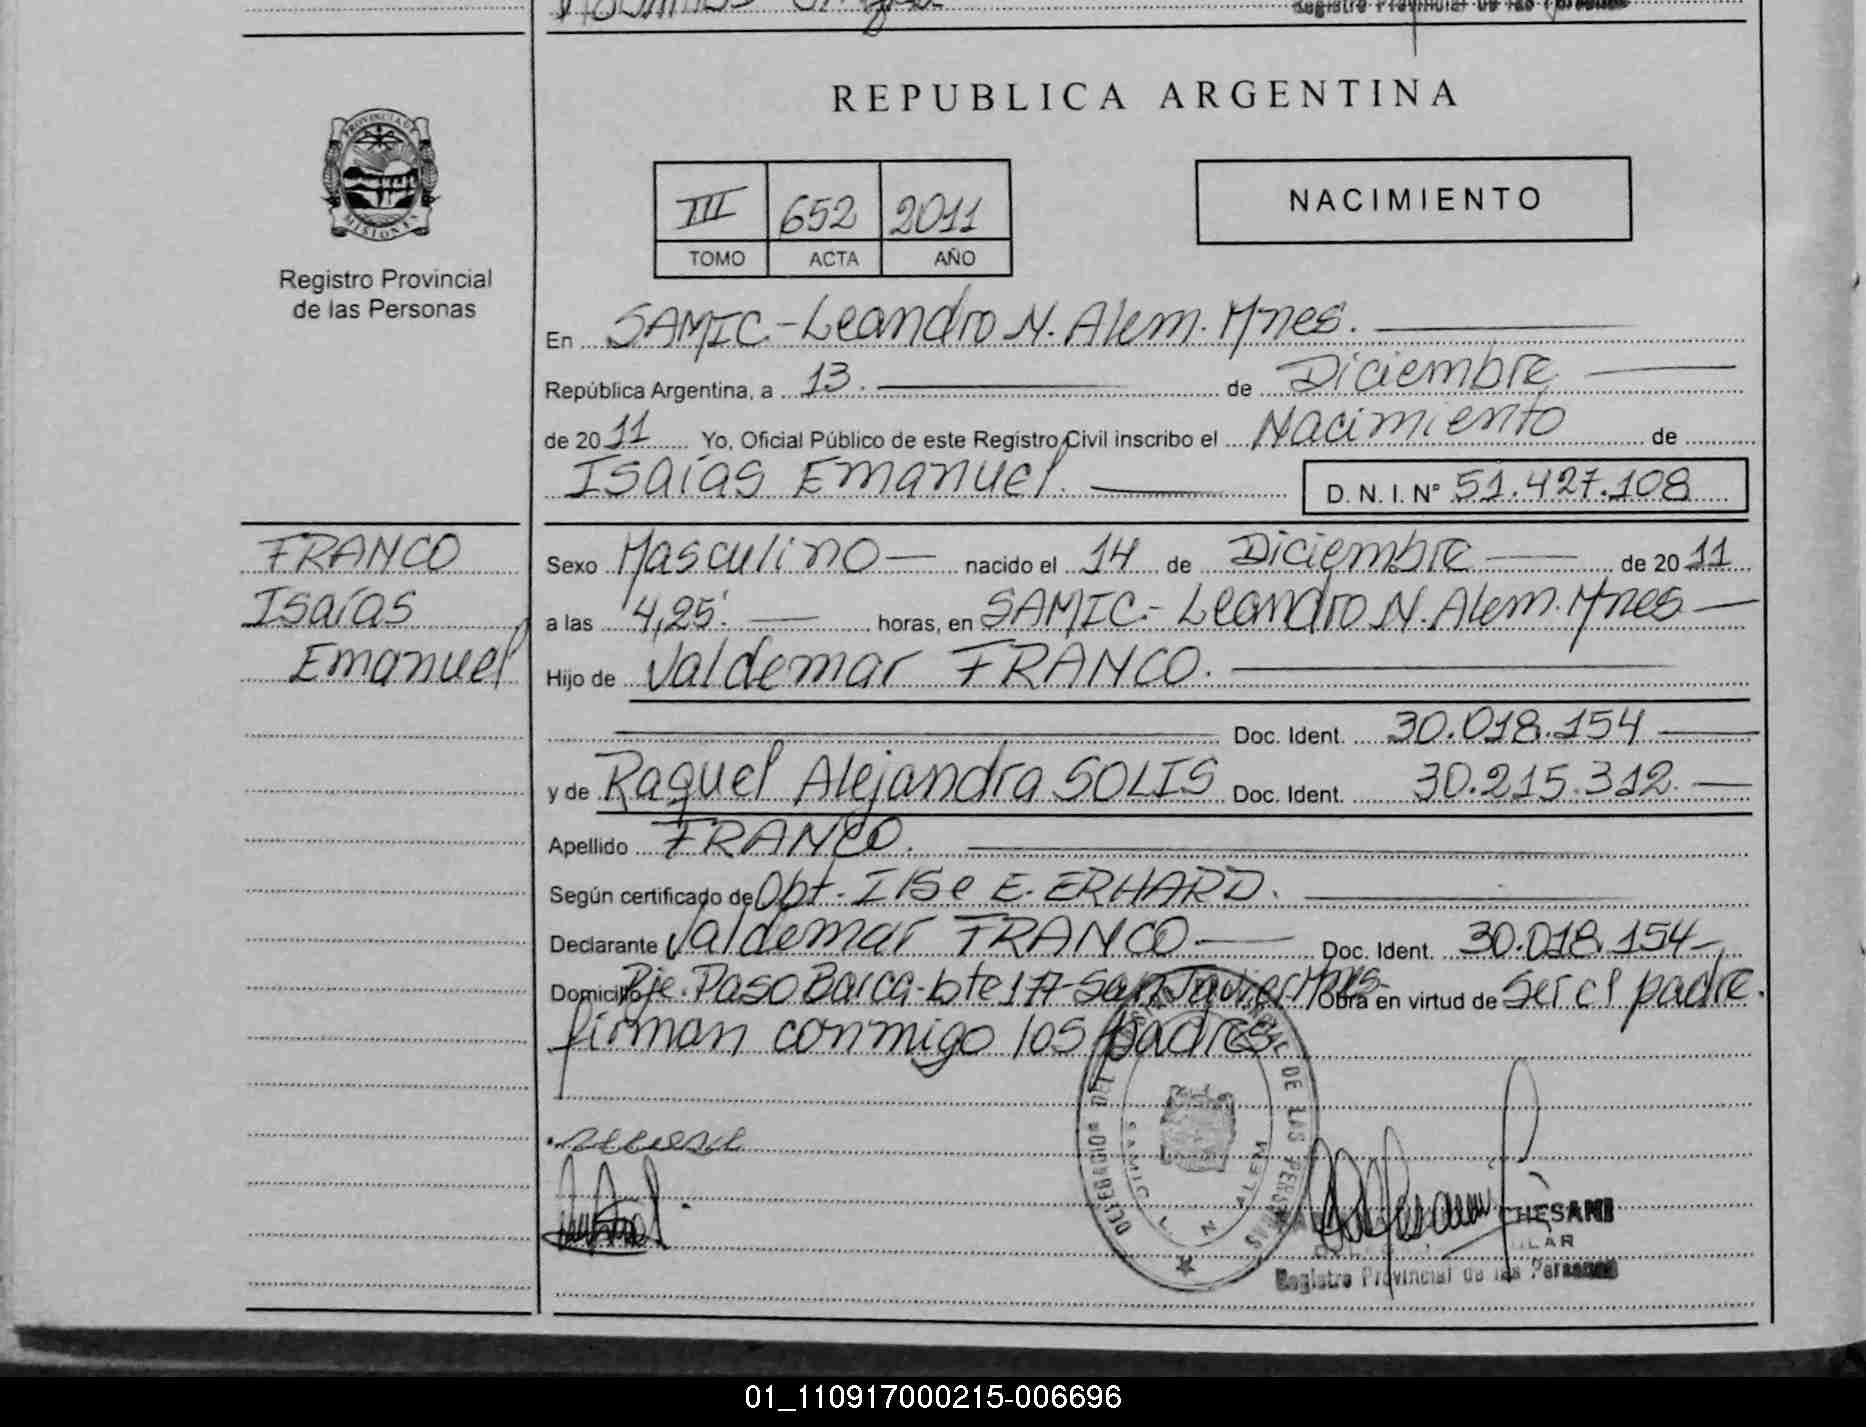 Registro Provincial de las Personas
PROVINCIA DE
MISIONES
Registro Provincial
de las Personas
REPUBLICA ARGENTINA
III 652 2011
TOMO ACTA AÑO
NACIMIENTO
En SAMIC.-Leandro N. Alem. Mnes.
República Argentina, a 13. de Diciembre
de 20 11 Yo, Oficial Público de este Registro Civil inscribo el Nacimiento de
Isaías Emanuel. D. N. I. Nº 51.427.108
FRANCO
Isaías
Emanuel
Sexo Masculino nacido el 14 de Diciembre de 20 11
a las 4,25' horas, en SAMIC.- Leandro N. Alem. Mnes
Hijo de Valdemar FRANCO.
Doc. Ident. 30.018.154
y de Raquel Alejandra SOLIS Doc. Ident. 30.215.312.
Apellido FRANCO.
Según certificado de Obt. Ilse E. ERHARD.
Declarante Valdemar FRANCO. Doc. Ident. 30.018.154
Domicilio Pje. Paso Barca-lote 177-San Javier Mns- Obra en virtud de Ser el padre.
firman conmigo los padres
DELEGACION DEL DE LAS PERSONAS
SAMIC L N ALEM
CHESANI
Registro Provincial de las Personas
01_110917000215-006696